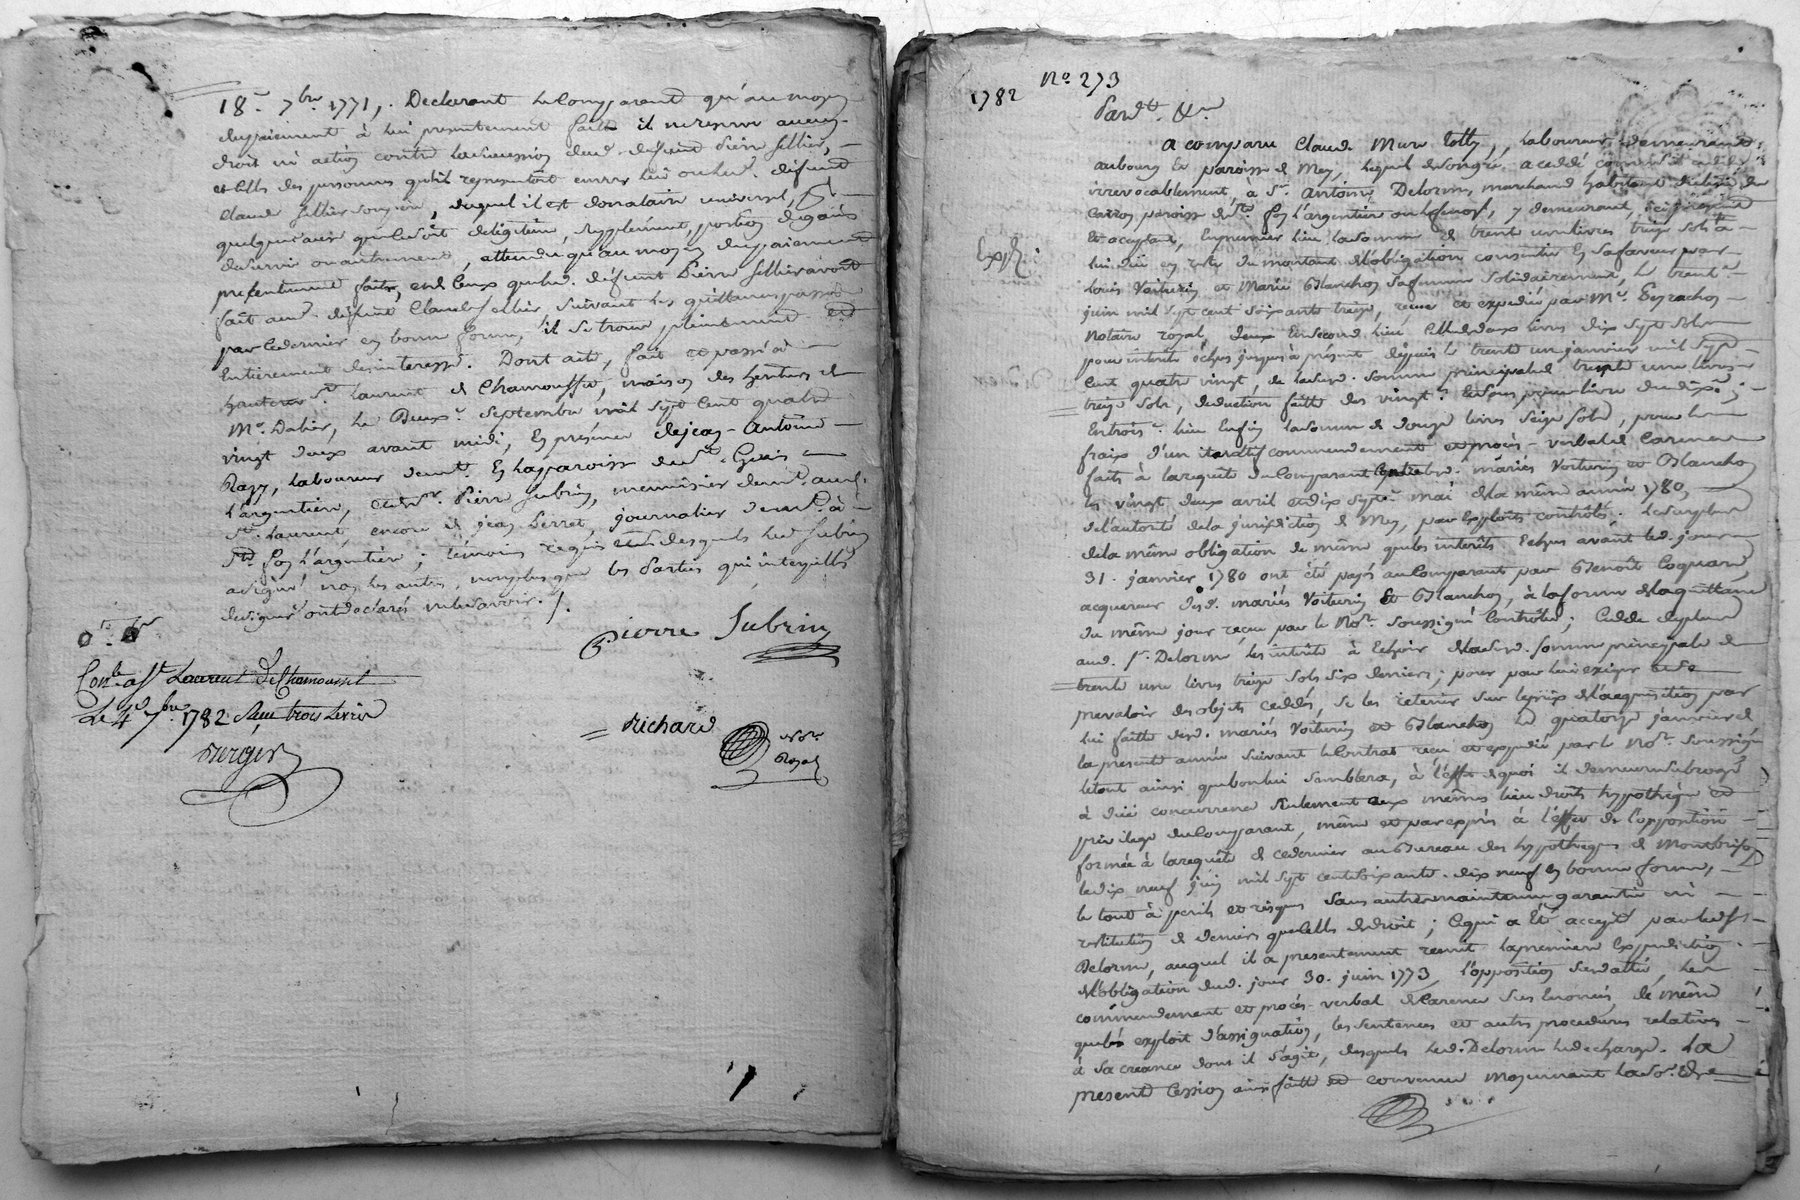 18e. 7bre 1771, . Declarant le Comparant qu'au moyen
du paiement à lui presentement fait il ne reserve aucun
droit ni action contre la succession dud. defunt Pierre Sellier, —
et celle des personnes qu'il representoit envers lui ou led. défunt
Claude Sellier son père, duquel il est donataire universel, —
quelques unes que ce soit de légitime, supplément, portion de gains
de survie ou autrement, attendu qu'au moyen du paiement
presentement fait, et de ceux que led. défunt Pierre Sellier avoit
fait aud. défunt Claude Sellier suivant les quittances passées
par ce dernier en bonne forme, il se trouve pleinement et
entierement desinteressé. Dont acte, fait et passé à —
St. Laurent de Chamousset, maison des heritiers de
Me. Dalier, le Deuxe. Septembre mil sept cent quatre
vingt deux avant midi, en présence de jean-Antoine —
Razy, laboureur demt. en la paroisse de
l'argentiere, Pierre Subrin, menuisier demt. aud.
St. Laurent, encore de jean Perret, journalier demt. à —
Ste. foy l'argentiere; témoins requis desquels led. Subrin
a signé non les autres, non plus que les Parties qui interpellés
de signer ont declarés ne le savoir ./.
Pierre Subrin
Conlé. a St. Laurent de Chamousset
Le 4e 7bre. 1782. Reçu trois livres
Richard
Nore.
Royal
1782 No. 273
Pardt. &a.
A comparu Claude Mure , Laboureur demeurant
au bourg et paroisse de Mey, lequel de son gré a cédé comme il cede
irrevocablement, à Sr. Antoine Delorme, marchand habitant du lieu du
paroisse de Ste. foy l'argentiere , y demeurant, ici present
et acceptant, en premier lieu la somme de trente une livres treize sols à —
lui dûe en reste du montant de l'obligation consentie en sa faveur par —
Expé.
Louis Voiturin et Marie Blanchon sa femme solidairement, le trente
juin mil sept cent soixante treize, reçue et expediée par Me. —
Notaire royal, deux. En second lieu celle de deux livres dix sept sols
pour interêts échus jusques à présent depuis le trente un janvier mil sept
cent quatre vingt, de lad. somme principale de trente une livres
treize sols, deduction faite des vingt. ;
En troise. lieu enfin la somme de douze livres seize sols, pour les
frais d'un itératif commandement et procès-verbal de carence
faits à la requête du Comparant contre lesd. mariés Voiturin et Blanchon
les vingt deux avril et dix septe. mai de la même année 1780,
de l'autorité de la jurisdiction de Mey, par exploits contrôlés. Le surplus
de la même obligation de même que les interêts échus avant led. jour
31. janvier 1780 ont été payés au Comparant par Benoît Coquard,
acquereur desd. mariés Voiturin et Blanchon, à la forme de la quittance
du même jour reçue par le Nore. soussigné Contrôlée; Cede de plus
aud. Sr. Delorme les interêts à échoir de lad. somme principale de
trente une livres treize sols six deniers; pour par lui exiger et se
prevaloir des objets cedés, se les retenir sur le prix de l'acquisition par
lui faite desd. mariés Voiturin et Blanchon le quatorze janvier de
la presente année suivant le Contrat reçu et expedié par le Nore. soussigné
le tout ainsi que bon lui semblera, à l'effet de quoi il demeure subrogé
à dûe concurrence seulement aux mêmes lieu droits hypothèque et
privilege du Comparant, même et par exprès à l'effet de l'opposition —
formée à la requête de ce dernier au Bureau des hypotheques de Montbrison
le dix neuf juin mil sept cent soixante-dix neuf en bonne forme, —
le tout à perils et risques sans autre maintenue garantie ni —
restitution de deniers que celle de droit; Ce qui a été accepté par led. Sr. —
Delorme, auquel il a presentement remit la premiere expedition
de l'obligation dud. jour 30. juin 1773, l'opposition susdattée, le
commandement et procès-verbal de carence sus enoncés, de même
que les exploit d'assignation, les sentences et autres procedures relatives
à sa creance dont il s'agit, desquels led. Delorme le decharge. La
presente Cession ainsi faite et convenue moyennant la so. de